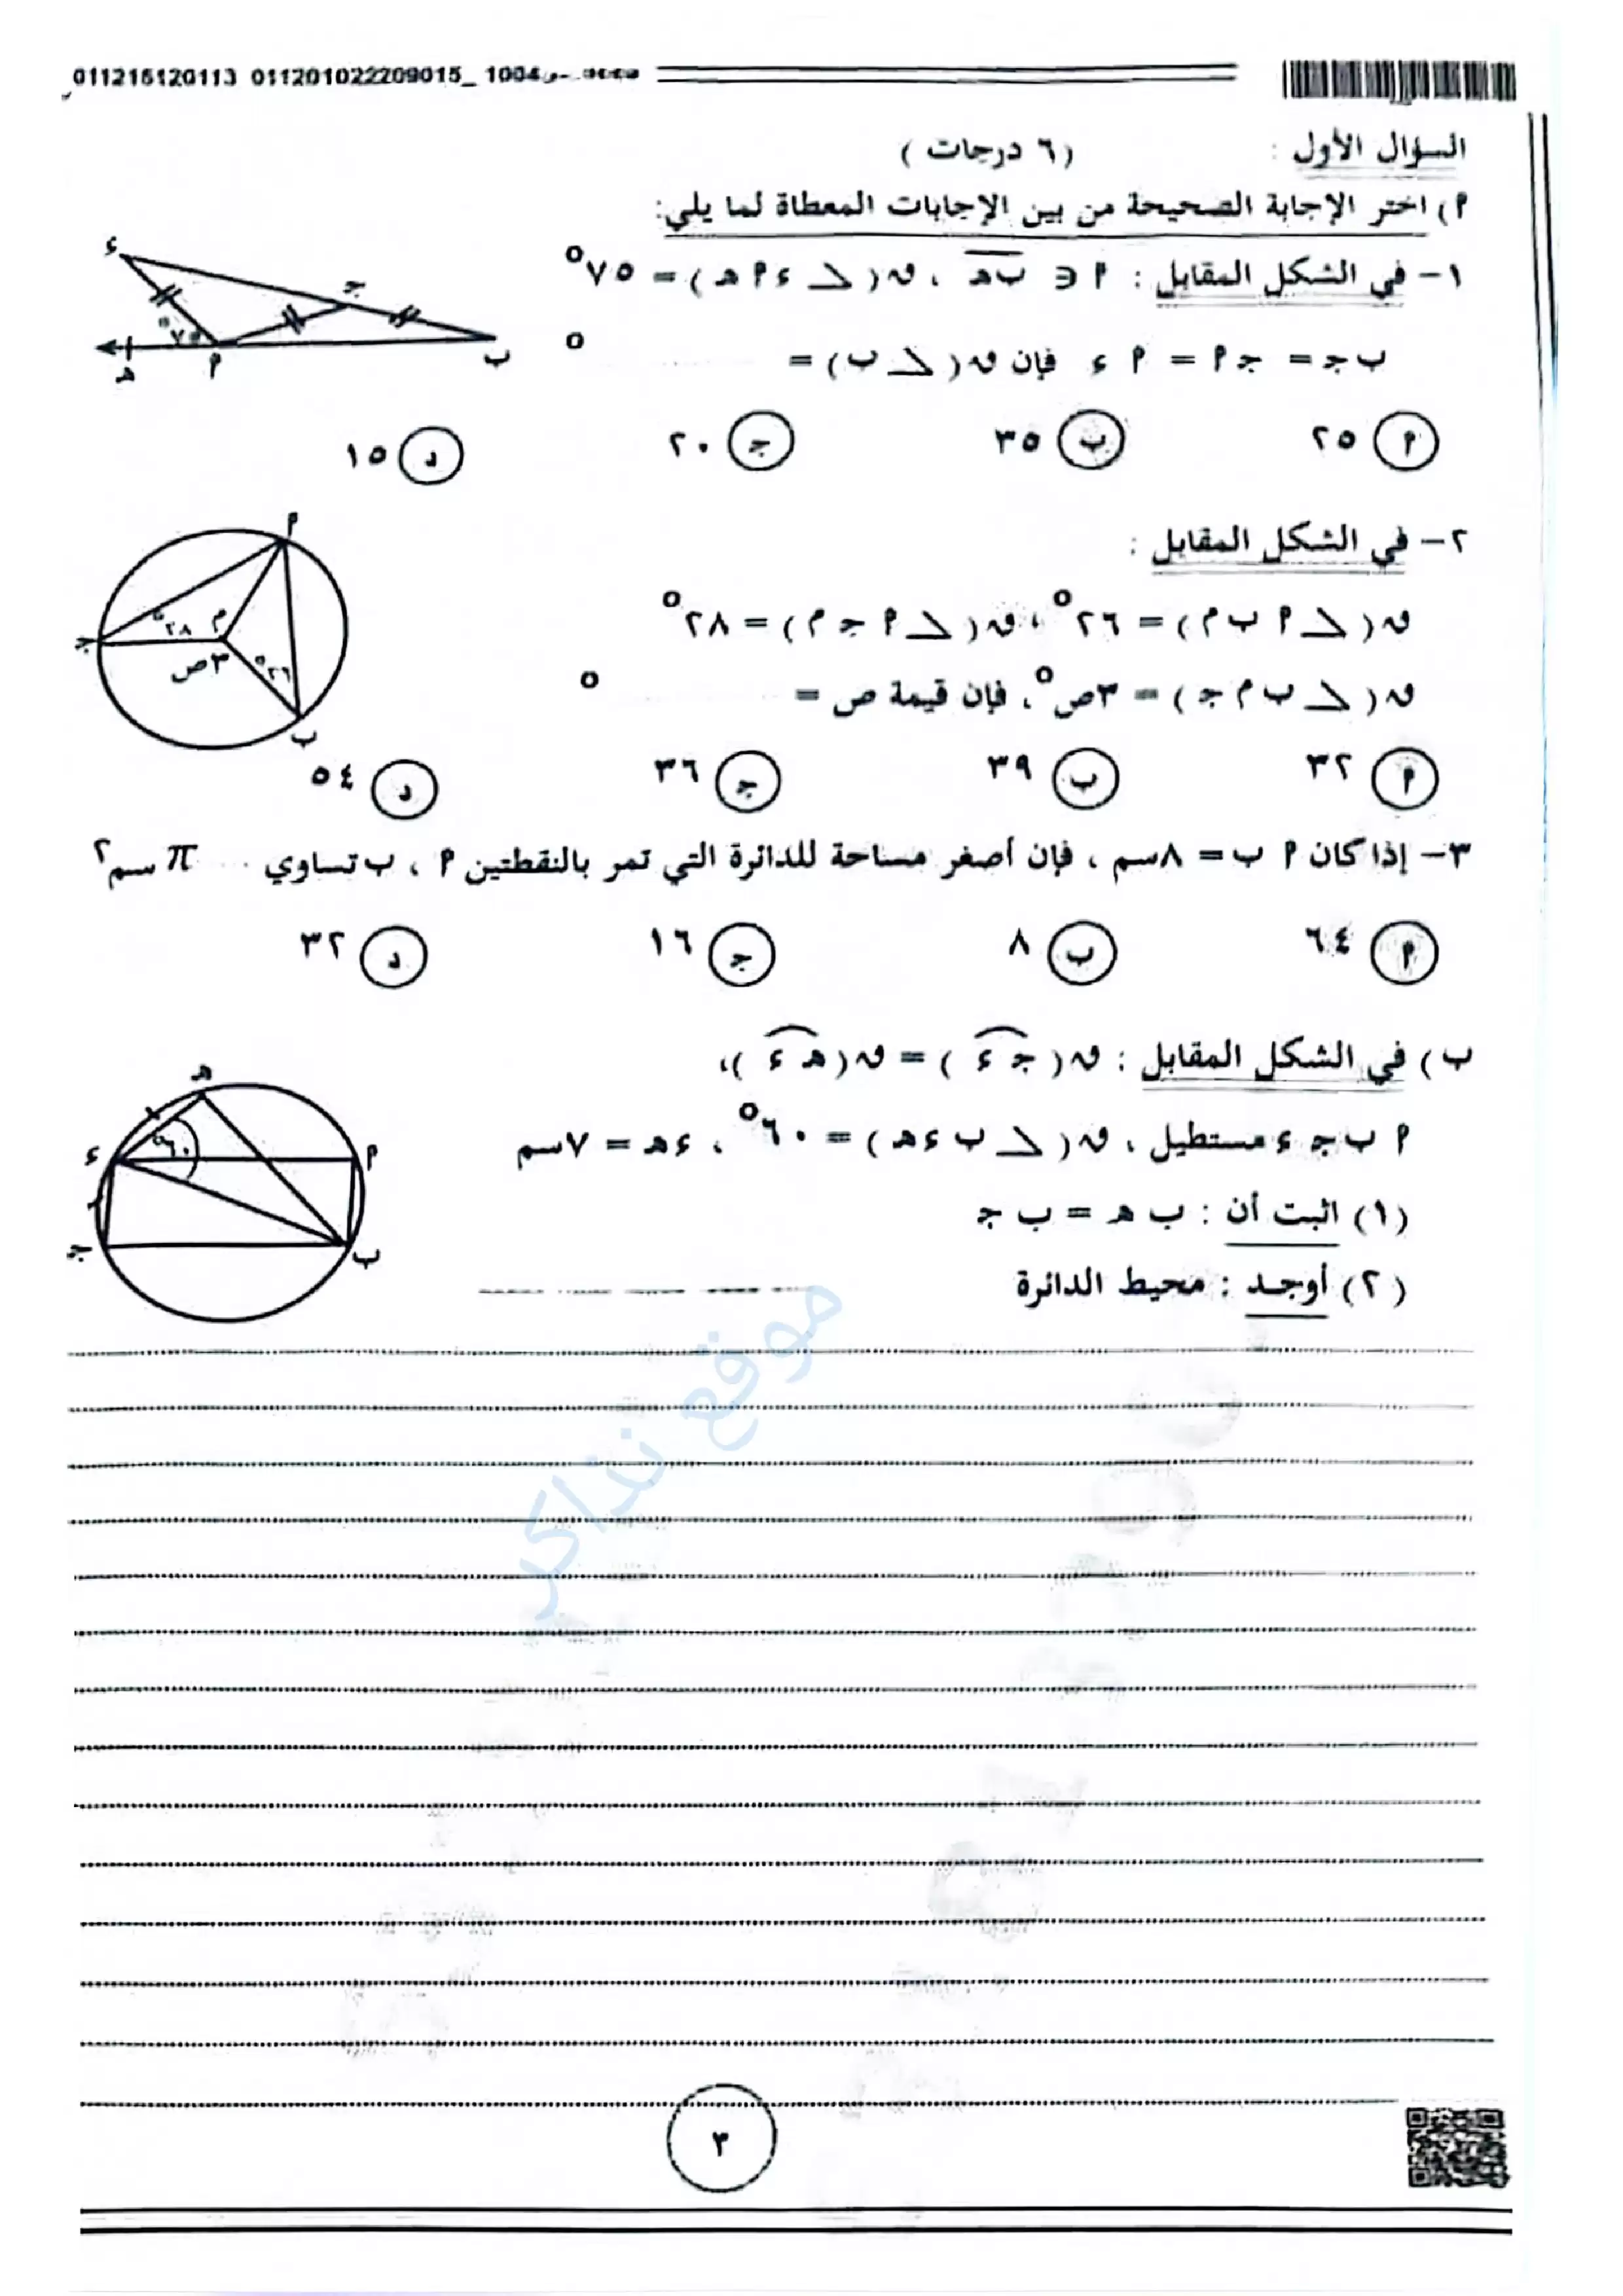 011216120113 011201022209015_ 1004
السؤال الأول : (٦ درجات )
أ) اختر الإجابة الصحيحة من بين الإجابات المعطاة لما يلي:
١- في الشكل المقابل : أ ∈ ب هـ ، ق( ∠ ء أ هـ ) = ٧٥°
ب جـ = جـ أ = أ ء فإن ق( ∠ ب) = °
أ ٢٥ ب ٣٥ جـ ٢٠ د ١٥
ء جـ ٧٥° هـ أ ب
٢- في الشكل المقابل :
ق( ∠ أ ب م ) = ٢٦° ، ق( ∠ أ جـ م ) = ٢٨°
ق( ∠ ب م جـ ) = ٣ص° ، فإن قيمة ص = °
أ ٣٢ ب ٣٩ جـ ٣٦ د ٥٤
أ م ٢٨° جـ ٣ص ٢٦° ب
٣- إذا كان أ ب = ٨سم ، فإن أصغر مساحة للدائرة التي تمر بالنقطتين أ ، ب تساوي .... π سم٢
أ ٦٤ ب ٨ جـ ١٦ د ٣٢
ب) في الشكل المقابل : ق( جـ ء ) = ق( هـ ء )،
أ ب جـ ء مستطيل ، ق( ∠ ب ء هـ ) = ٦٠° ، ء هـ = ٧سم
(١) اثبت أن : ب هـ = ب جـ
(٢) أوجد : محيط الدائرة
هـ ء ٦٠° أ جـ ب
موقع نذاكر
٣